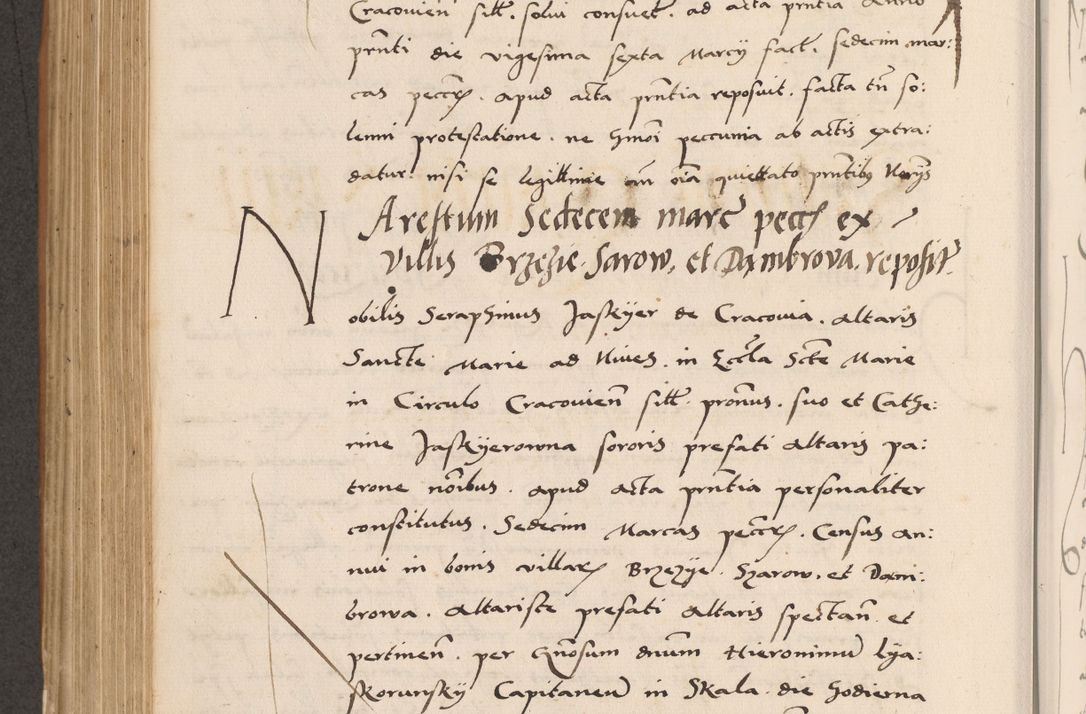 Cracovien̄ sil̄t. solvi consuet̄. ad acta pr̄ntia Anno
pr̄nti die vigesima sexta Marcij fact̄. sedecim mar:
cas pecc̄ꝝ. apud acta pr̄ntia reposuit. facta tn̄ so:
lenni protestatione. ne hmōi peccunia ab actis extra:
datur: nisi se legittimie
Arestum Sedecem marc̄ pecc̄ꝝ ex
villis Brzęzie. Sarow, et Dambrova. reposit̄.
Nobilis Seraphinus Jaskyer de Cracovia. Altaris
Sancte Marie ad Nives. in Eccl̄a Scte Marie
in Circulo Cracovien̄ sil̄t. pronn̄us. suo et Cathe:
rine Jaskyerowna sororis prefati Altaris pa:
trone noībus. apud Acta pr̄ntia personaliter
constitutus. Sedecim Marcas pecc̄ꝝ. Census an:
nui in bonis villarꝝ Brzezye. Szarow. et Dam:
browa. Altariste prefati Altaris spectan̄. et
pertinen̄. per Gn̄osum dn̄um Hieronimū lya:
skorunsky Capitaneū in Skala. die hodierna